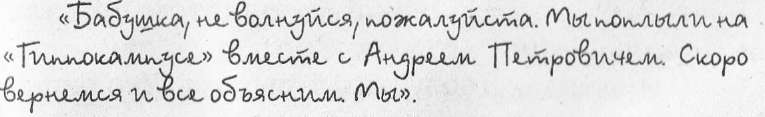 «Бабушка, не волнуйся, пожалуйста. Мы поплыли на
«Гиппокампусе» вместе с Андреем Петровичем. Скоро
вернемся и все объясним. Мы».